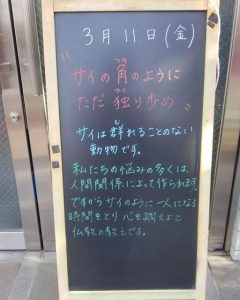 3月11日(金)
"サイの角のように
つの
ただ独り歩め"
ひと
サイは群れることのない
む
動物です。
私たちの悩みの多くは、
人間関係によって作られます。
ですからサイのように一人になる
時間をとり心を調えよと
仏教の教えです。